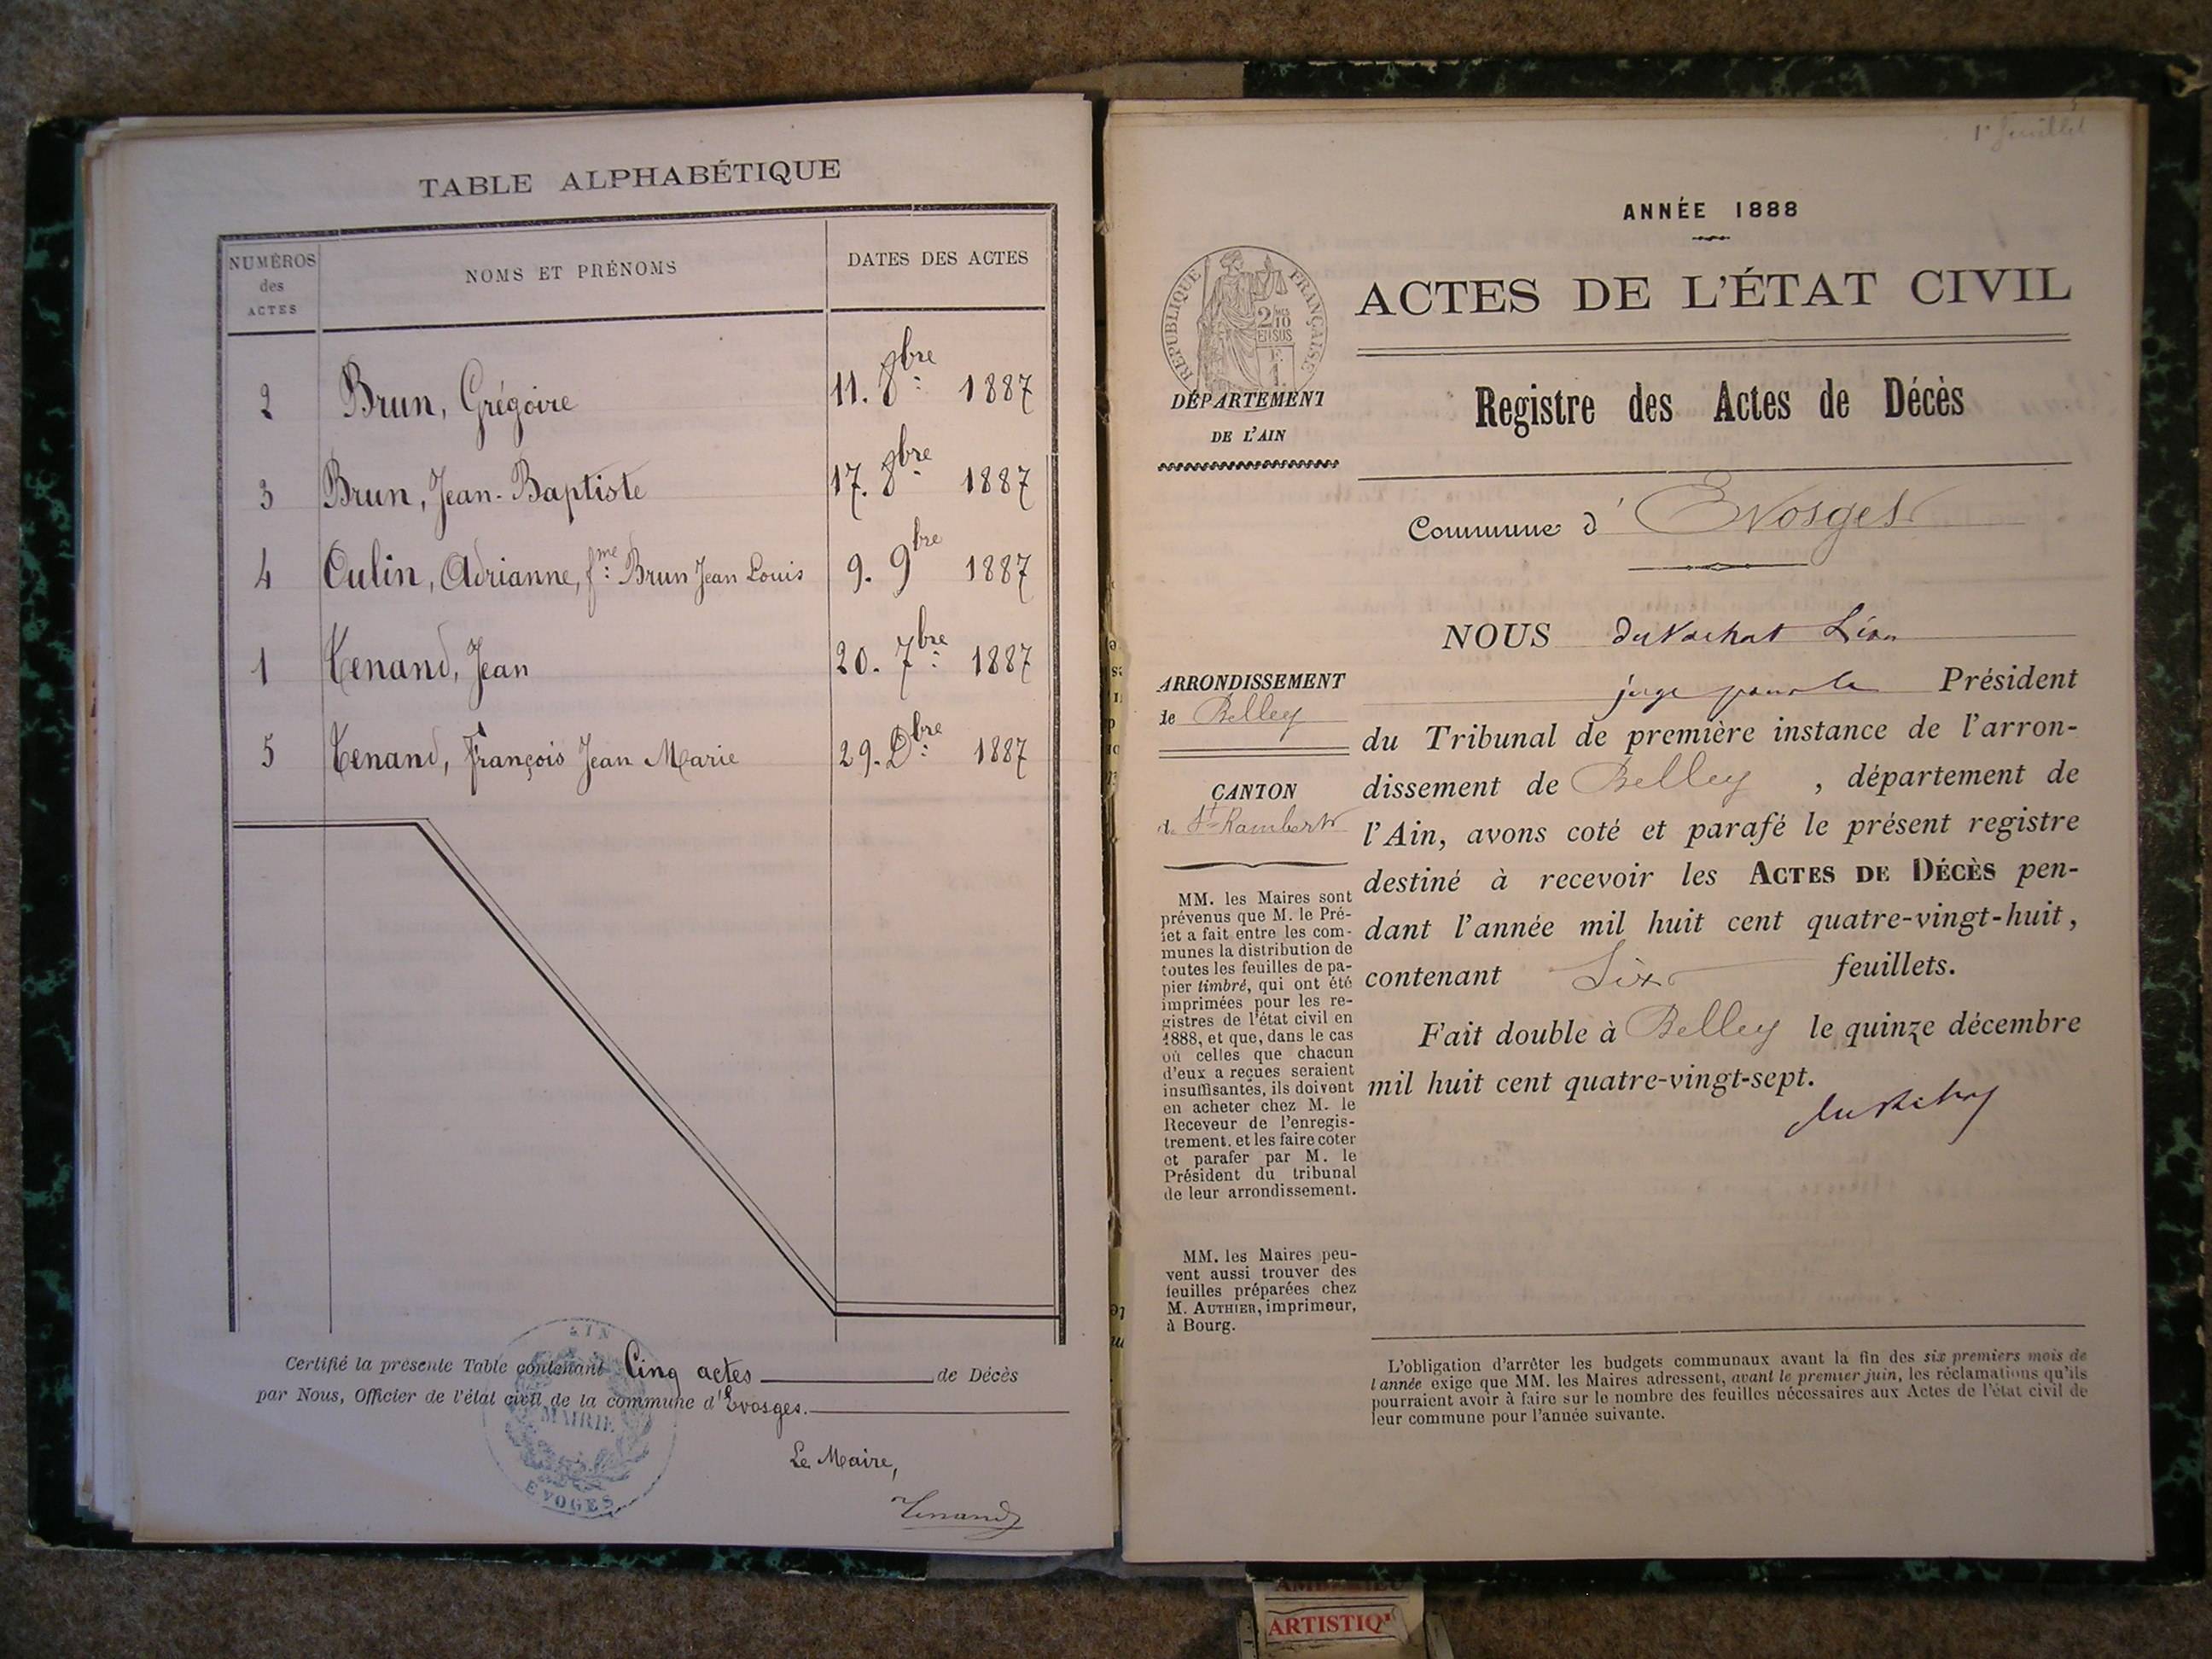 TABLE ALPHABÉTIQUE
NUMÉROS des ACTES
NOMS ET PRÉNOMS
DATES DES ACTES
2 Brun, Grégoire 11. 8bre 1887
3 Brun, Jean-Baptiste 17. 8bre 1887
4 Culin, Adrianne, fme Brun Jean Louis 9. 9bre 1887
1 Tenand, Jean 20. 7bre 1887
5 Tenand, François Jean Marie 29. Dbre 1887
Certifié la présente Table contenant Cinq actes de Décès
par Nous, Officier de l'état civil de la commune d'Evosges.
AIN
MAIRIE
EVOGES
Le Maire,
Tenand
1er feuillet
ANNÉE 1888
RÉPUBLIQUE FRANÇAISE
2 10MES
EN SUS
ACTES DE L'ÉTAT CIVIL
DÉPARTEMENT
DE L'AIN
Registre des Actes de Décès
Commune d'Evosges
NOUS Léon
juge pour le Président
ARRONDISSEMENT
de Belley
du Tribunal de première instance de l'arron-
dissement de Belley, département de
CANTON
de St-Rambert
l'Ain, avons coté et parafé le présent registre
destiné à recevoir les ACTES DE DÉCÈS pen-
dant l'année mil huit cent quatre-vingt-huit,
contenant Six feuillets.
Fait double à Belley le quinze décembre
mil huit cent quatre-vingt-sept.
MM. les Maires sont
prévenus que M. le Pré-
fet a fait entre les com-
munes la distribution de
toutes les feuilles de pa-
pier timbré, qui ont été
imprimées pour les re-
gistres de l'état civil en
1888, et que, dans le cas
où celles que chacun
d'eux a reçues seraient
insuffisantes, ils doivent
en acheter chez M. le
Receveur de l'enregis-
trement, et les faire coter
et parafer par M. le
Président du tribunal
de leur arrondissement.
MM. les Maires peu-
vent aussi trouver des
feuilles préparées chez
M. AUTHIER, imprimeur,
à Bourg.
L'obligation d'arrêter les budgets communaux avant la fin des six premiers mois de
l'année exige que MM. les Maires adressent, avant le premier juin, les réclamations qu'ils
pourraient avoir à faire sur le nombre des feuilles nécessaires aux Actes de l'état civil de
leur commune pour l'année suivante.
ARTISTIQ